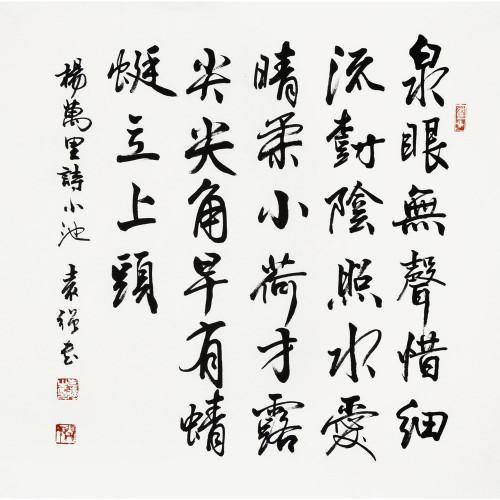 泉眼無聲惜細
流樹陰照水愛
晴柔小荷才露
尖尖角早有蜻
蜓立上頭
楊萬里詩小池 袁強書